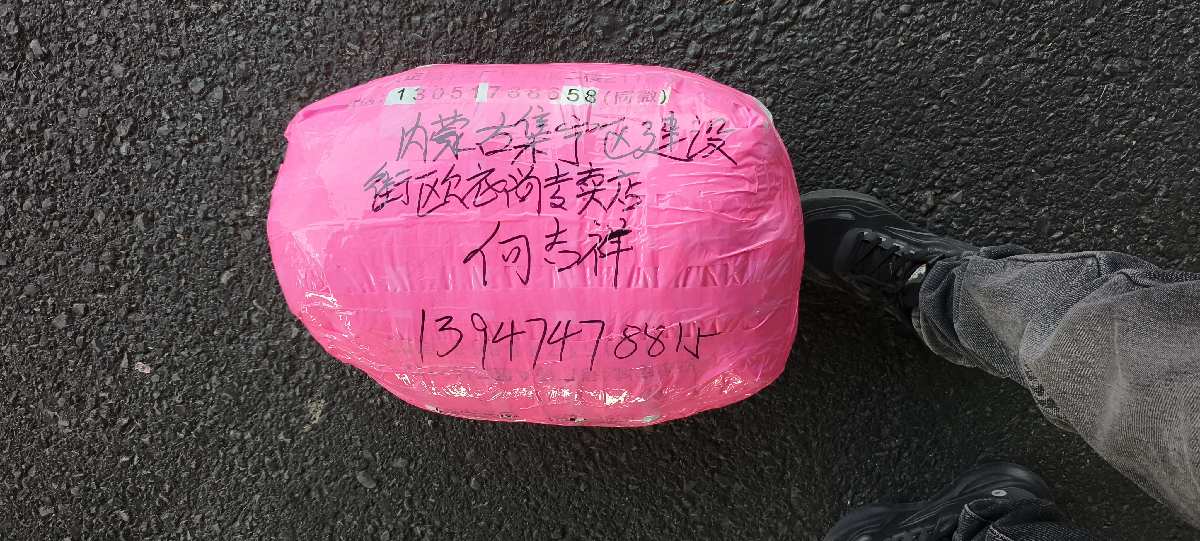 13051738658(同微)
内蒙古集宁区建设
街欧衣尚专卖店
何吉祥
13947478815